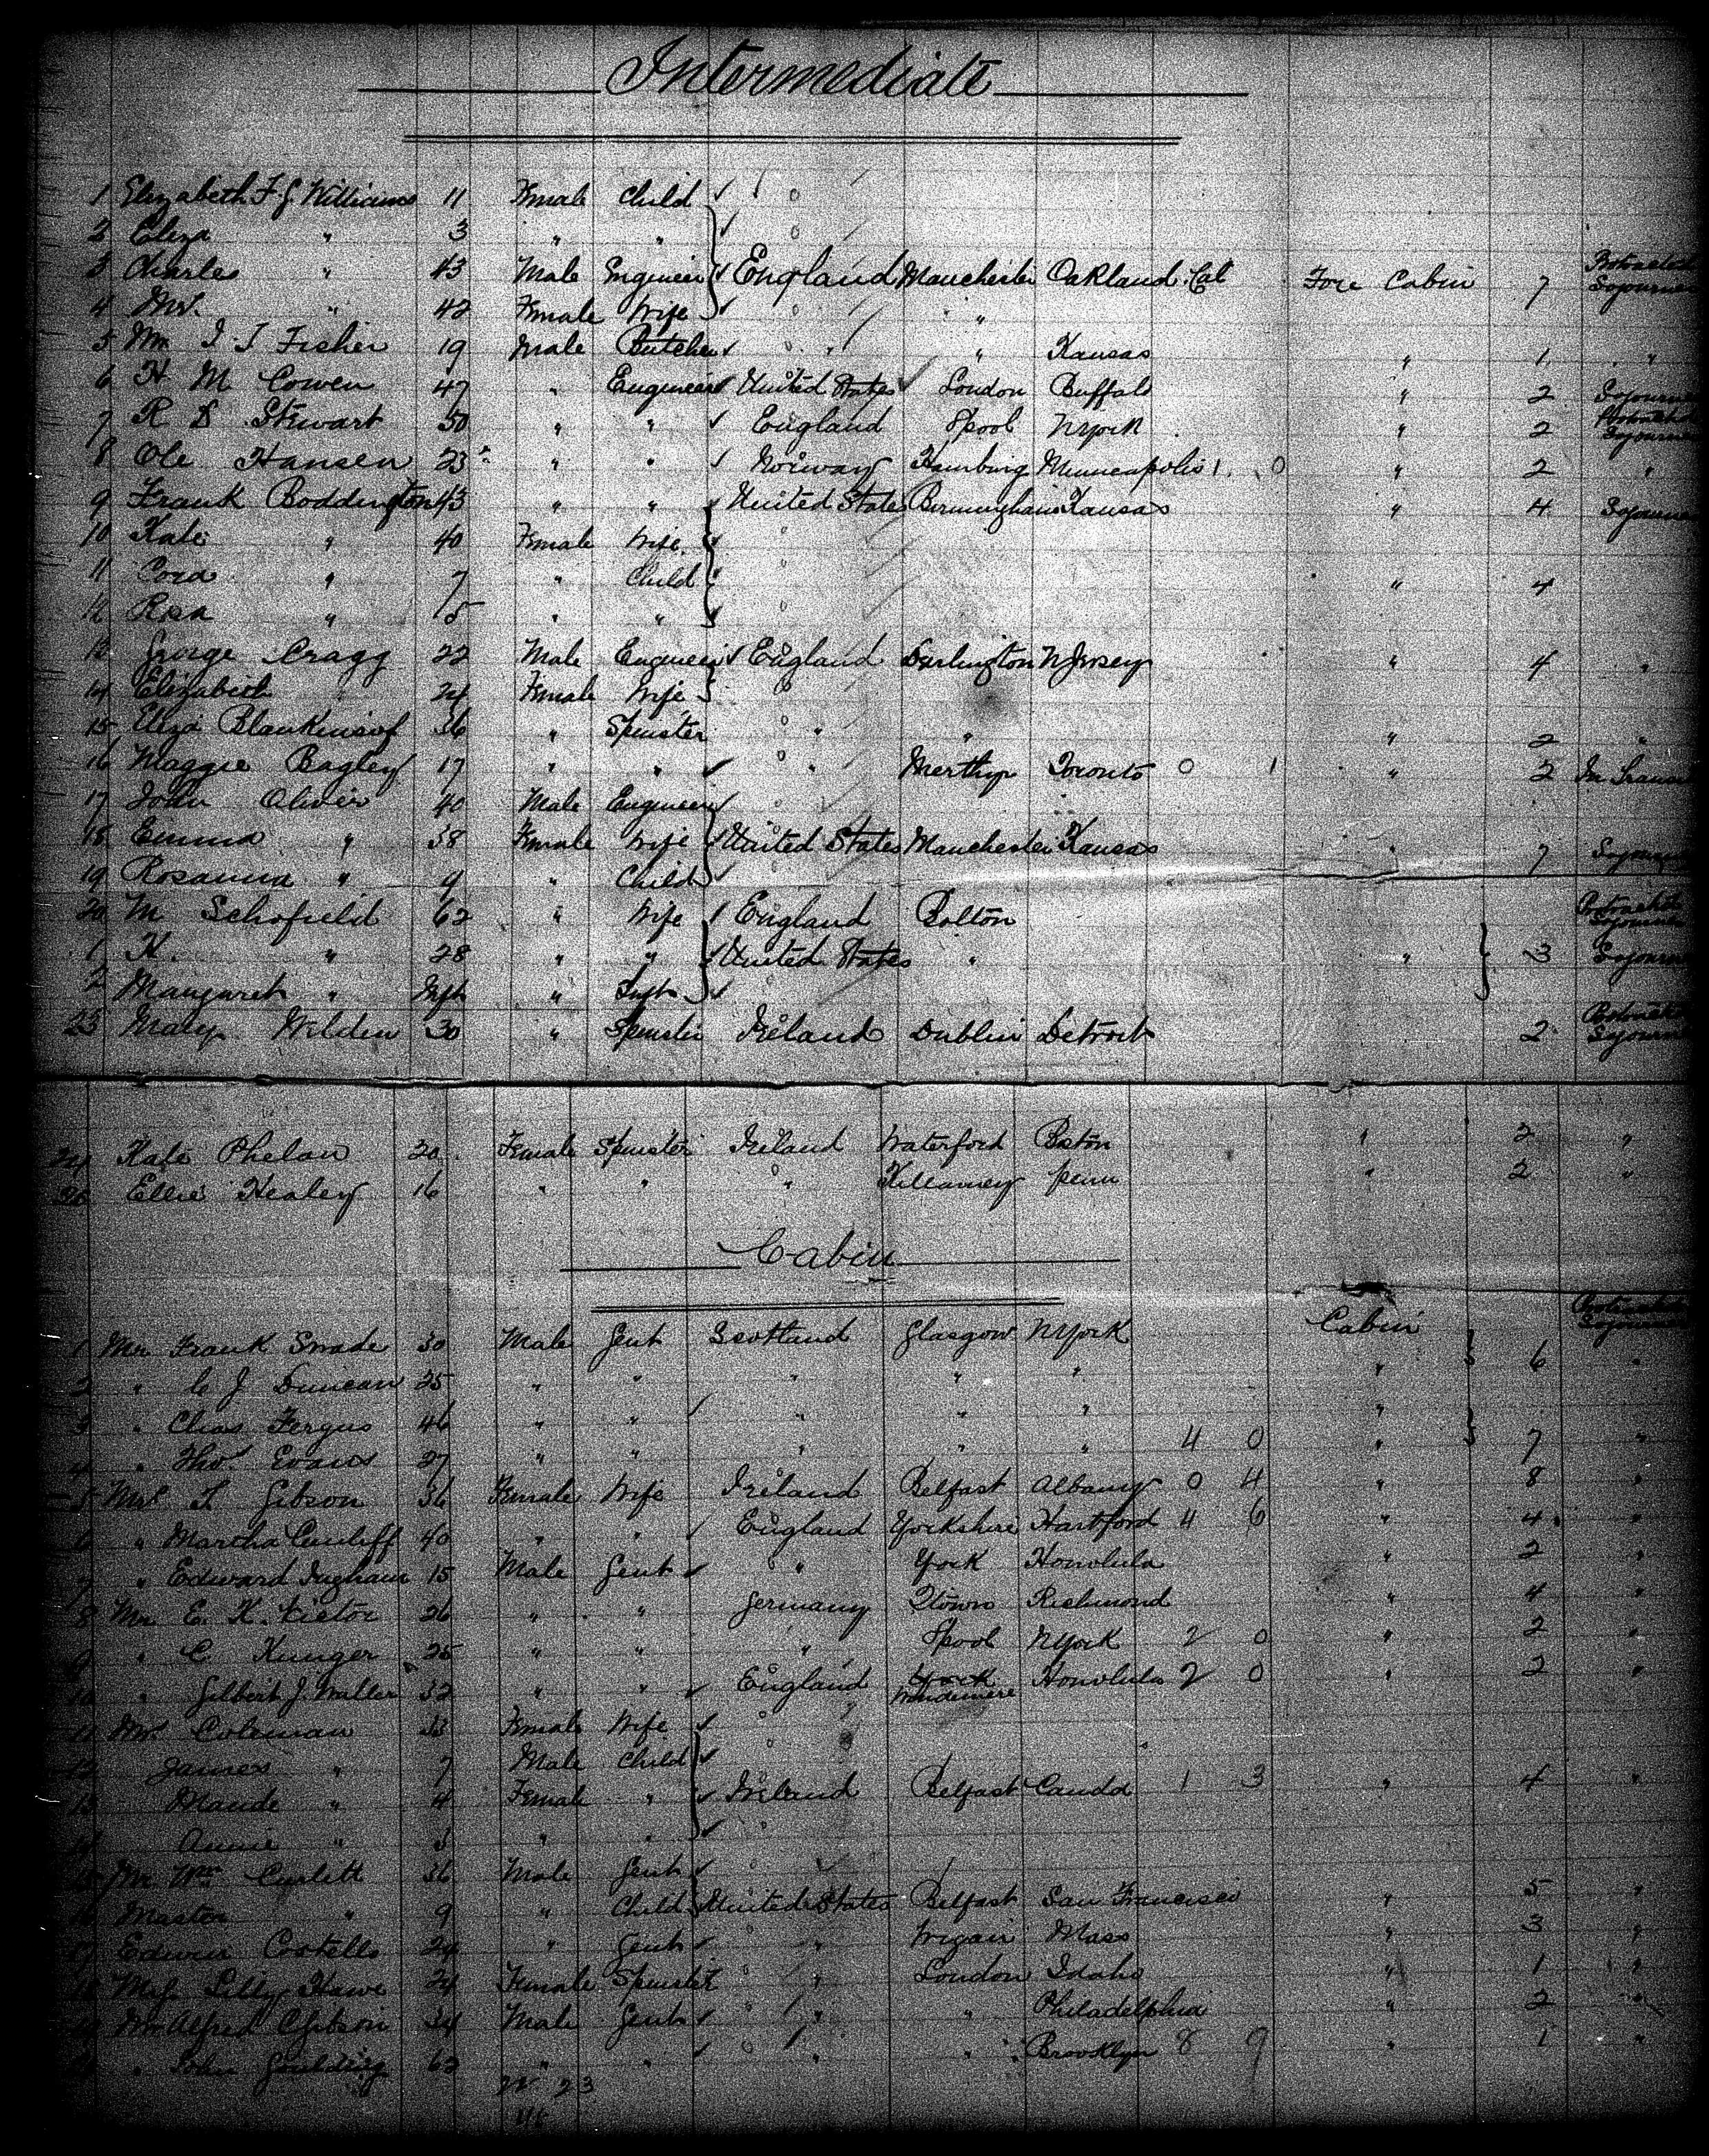 Intermediate
1 Elizabeth F. J. Williams 11 Female Child
2 Eliza " 3 " "
3 Charles " 43 Male Engineer England Manchester Oakland. Cal Fore Cabin 7 Protracted Sojourner
4 Mrs. " 42 Female Wife "
5 Wm J. T Fisher 19 Male Butcher " " Kansas " 1 "
6 H M Cowen 47 " Engineer United States London Buffalo " 2 Sojourner
7 R D Stewart 30 " " England Lpool NYork " 2 Protracted Sojourner
8 Ole Hansen 23 " " Norway Hamburg Minneapolis 1 0 " 2 "
9 Frank Boddington 43 " " United States Birmingham Kansas " 4 Sojourner
10 Kate " 40 Female Wife
11 Cora " 7 " Child " 4
12 Rosa " 5 " "
13 George Cragg 22 Male Engineer England Darlington N Jersey " 4 "
14 Elizabeth " 24 Female Wife
15 Eliza Blankinsop 36 " Spinster " " " 2 "
16 Maggie Bagley 17 " " " Merthyr Toronto 0 1 " 2 In Transit
17 John Oliver 40 Male Engineer
18 Emma " 38 Female Wife United States Manchester Kansas " 7 Sojourner
19 Rosanna " 9 " Child
20 M Schofield 62 " Wife England Bolton Protracted Sojourner
1 K. " 28 " " United States " " 3 Sojourner
2 Margaret " Inft " Inft
23 Mary Wilden 30 " Spinster Ireland Dublin Detroit 2 Protracted Sojourner
24 Kate Phelan 20 Female Spinster Ireland Waterford Boston " 2 "
25 Ellie Healey 16 " " " Killarney Penn " 2 "
Cabin
1 Mr Frank Smade 30 Male Gent Scotland Glasgow NYork Cabin Protracted Sojourner
2 " C J Duncan 25 " " " " " " 6 "
3 " Chas Fergus 46 " " " " " "
4 " Thos Evans 27 " " " " " 4 0 " 7 "
5 Mrs L Gibson 36 Female Wife Ireland Belfast Albany 0 4 " 8 "
6 " Martha Cunliff 40 " " England Yorkshire Hartford 4 6 " 4 "
7 " Edward Ingham 15 Male Gent " York Honolulu " 2 "
8 Mr E. K. Victor 26 " " Germany Qtown Richmond " 4 "
9 " C. Kunger 25 " " " Lpool NYork 2 0 " 2 "
10 " Gilbert J. Waller 32 " " England York Windemere Honolulu 2 0 " 2 "
11 Mrs Coleman 33 Female Wife
12 James " 7 Male Child
13 Maude " 4 Female " Ireland Belfast Canada 1 3 " 4 "
14 Annie " 3 " "
15 Mr Wm Curlett 36 Male Gent
16 Master " 9 " Child United States Belfast San Francisco " 5 "
17 Edwin Costello 24 " Gent " Wigan Mass " 3 "
18 Miss Lilly Howe 24 Female Spinster " London Idaho " 1 "
19 Mr Alfred C Gibson 34 Male Gent " " Philadelphia " 2 "
20 " John Goulding 62 " " " " Brooklyn 8 9 " 1 "
22 23